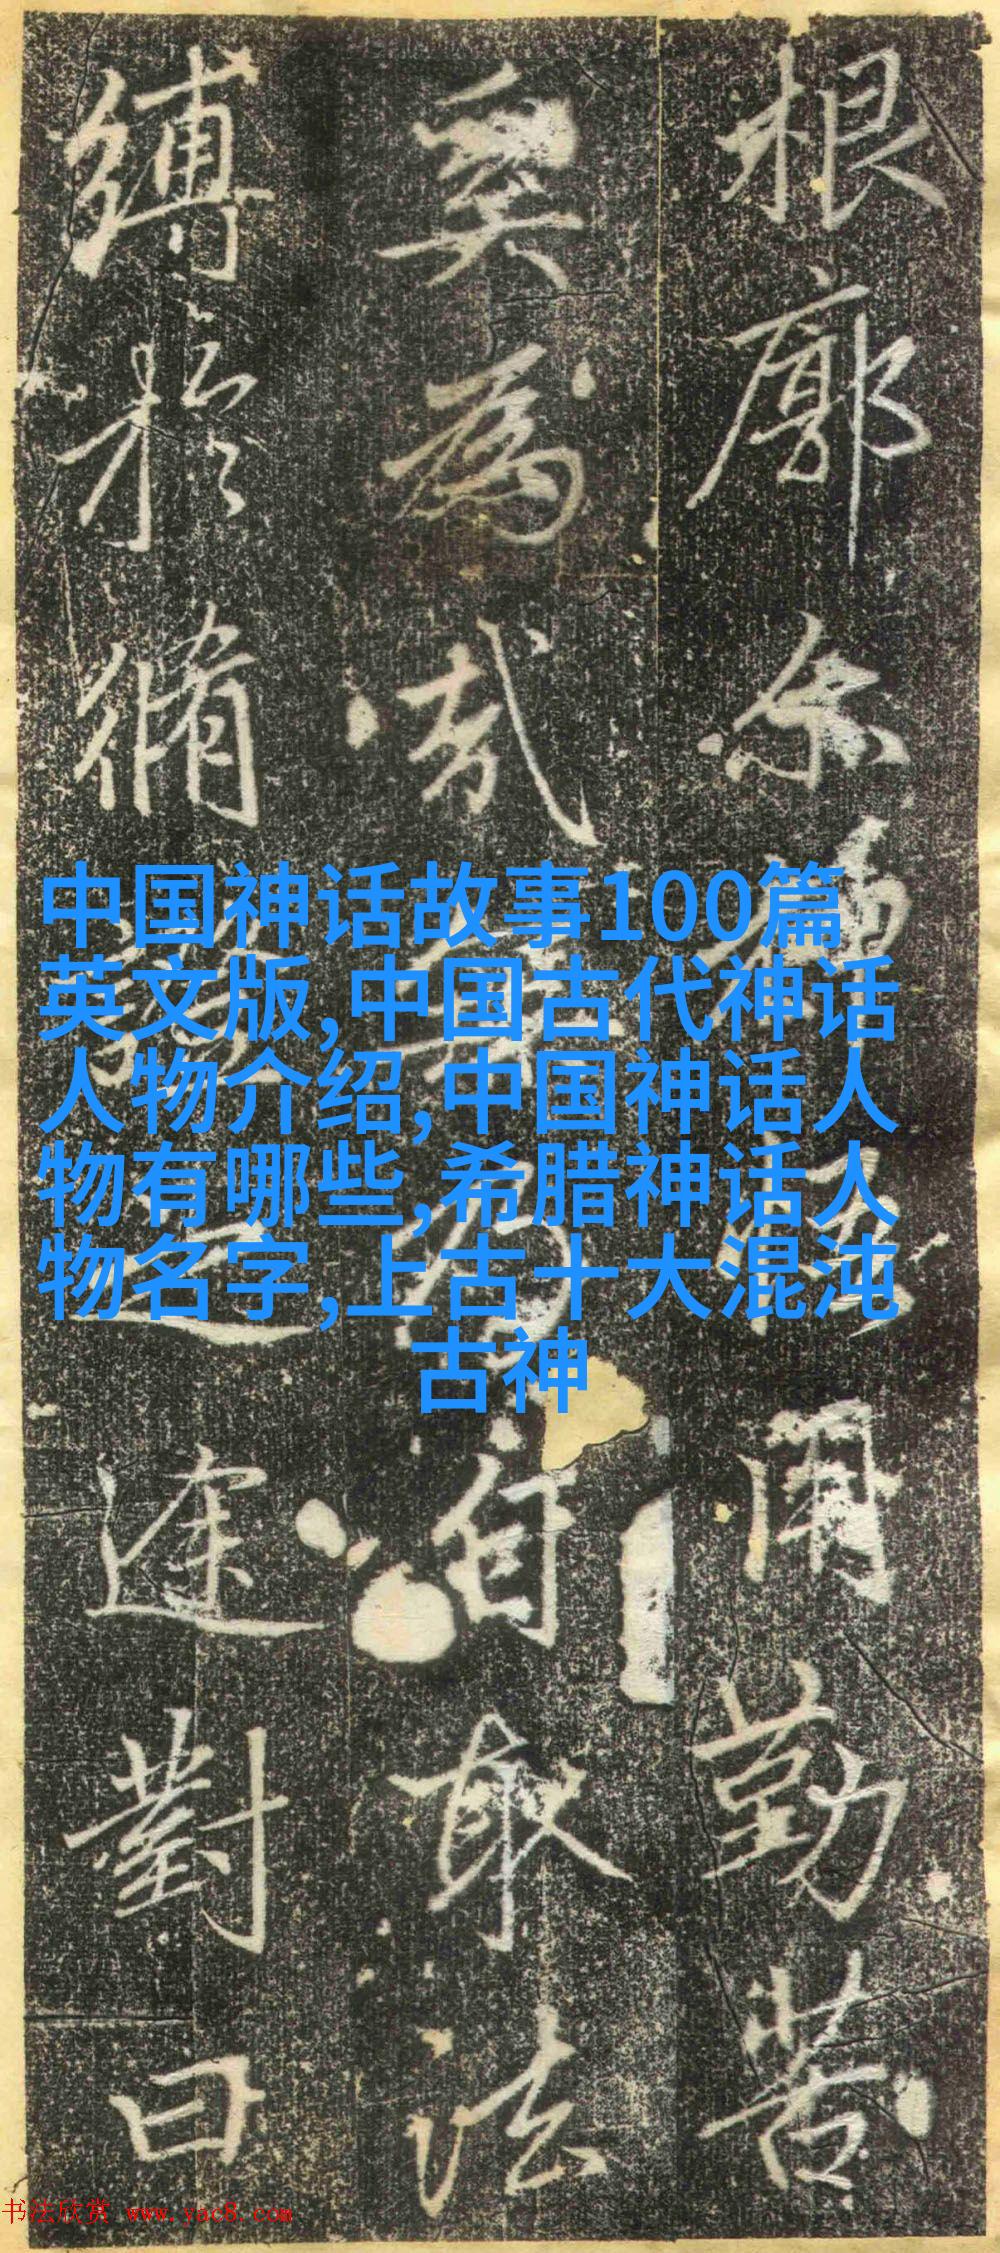 根廓勤苦
為哉自取法
縛於脩途對曰
中国神话故事100篇
英文版,中国古代神话
人物介绍,中国神话人
物有哪些,希腊神话人
物名字,上古十大混沌
古神
书法欣赏 www.yac8.com